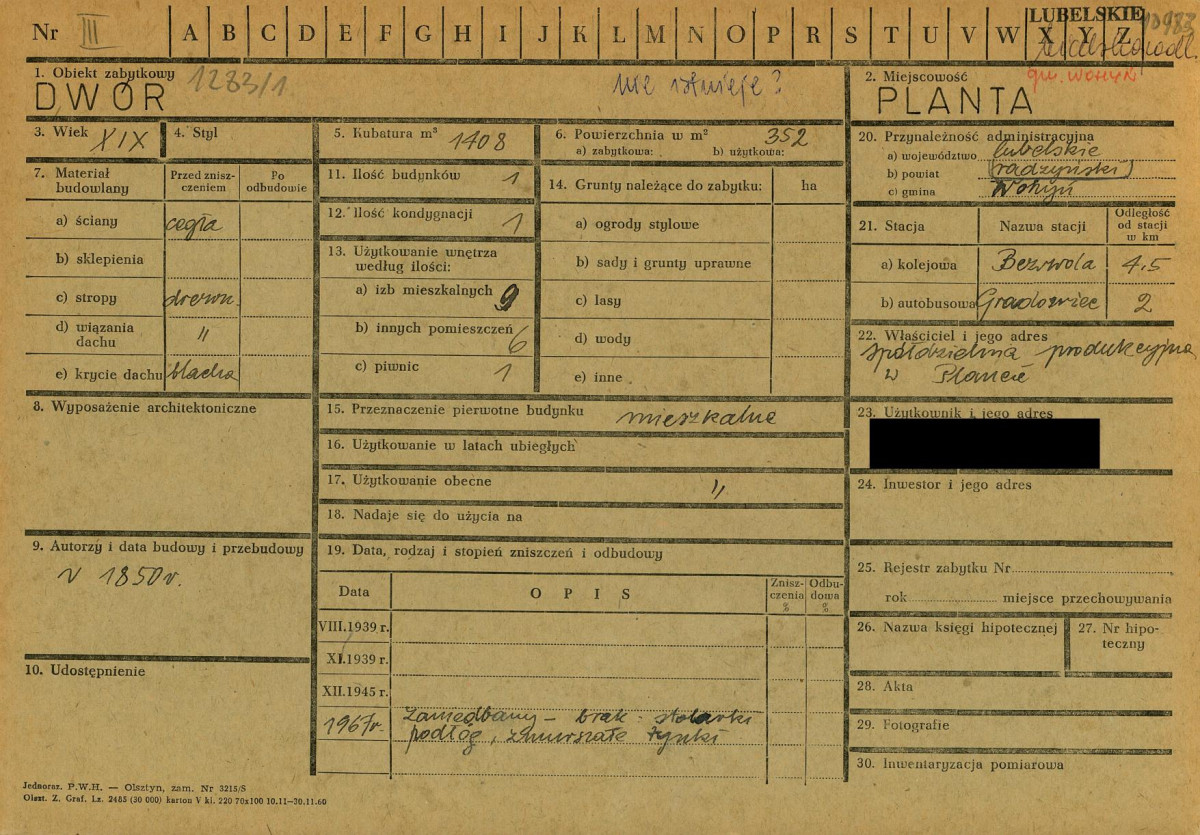 Nr III A B C D E F G H I J K L M N O P R S T U V W X Y Z
LUBELSKIE
gm. Wohyń
1. Obiekt zabytkowy 1283/1
DWÓR
nie istnieje?
2. Miejscowość
PLANTA
3. Wiek XIX
4. Styl
5. Kubatura m³ 1408
6. Powierzchnia w m² 352
a) zabytkowa: b) użytkowa:
7. Materiał budowlany
Przed znisz-
czeniem
Po
odbudowie
a) ściany cegła
b) sklepienia
c) stropy drewn.
d) wiązania
dachu "
e) krycie dachu blacha
8. Wyposażenie architektoniczne
9. Autorzy i data budowy i przebudowy
1850 r.
10. Udostępnienie
11. Ilość budynków 1
12. Ilość kondygnacji 1
13. Użytkowanie wnętrza
według ilości:
a) izb mieszkalnych 9
b) innych pomieszczeń 6
c) piwnic 1
14. Grunty należące do zabytku: ha
a) ogrody stylowe
b) sady i grunty uprawne
c) lasy
d) wody
e) inne
15. Przeznaczenie pierwotne budynku mieszkalne
16. Użytkowanie w latach ubiegłych
17. Użytkowanie obecne "
18. Nadaje się do użycia na
19. Data, rodzaj i stopień zniszczeń i odbudowy
Data
OPIS
Znisz-
czenia
%
Odbu-
dowa
%
VIII.1939 r.
XI.1939 r.
XII.1945 r.
1967r. zaniedbany – brak stolarki
podłóg, zmurszałe tynki
20. Przynależność administracyjna
a) województwo lubelskie
b) powiat (radzyński)
c) gmina Wohyń
21. Stacja
Nazwa stacji
Odległość
od stacji
w km
a) kolejowa Bezwola 4,5
b) autobusowa 2
22. Właściciel i jego adres
Spółdzielnia produkcyjna
w Plancie
23. Użytkownik i jego adres
24. Inwestor i jego adres
25. Rejestr zabytku Nr
rok miejsce przechowywania
26. Nazwa księgi hipotecznej
27. Nr hipo-
teczny
28. Akta
29. Fotografie
30. Inwentaryzacja pomiarowa
Jednoraz. P.W.H. — Olsztyn, zam. Nr 3215/S
Olszt. Z. Graf. Lz. 2485 (30 000) karton V kl. 220 70x100 10.11—30.11.60